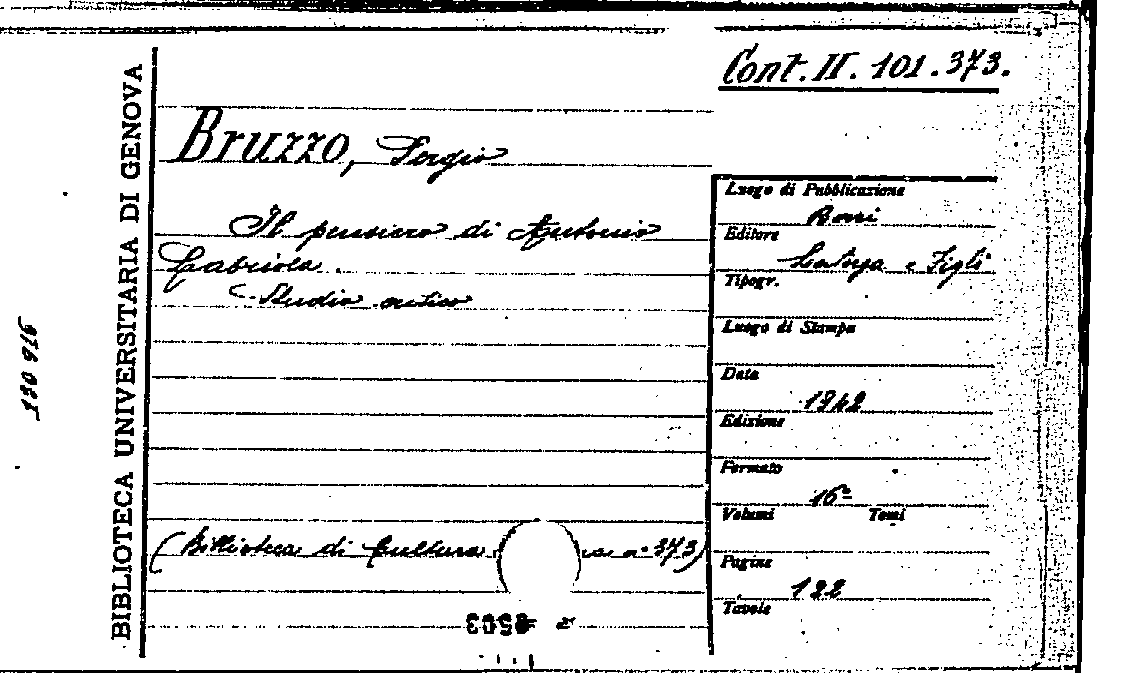 Cont. II. 101.373.
Bruzzo, Sergio
Il pensiero di Antonio
Labriola.
Studio critico
(Biblioteca di Cultura a n° 373)
BIBLIOTECA UNIVERSITARIA DI GENOVA
Luogo di Pubblicazione
Bari
Editore
Laterza e Figli
Tipogr.
Luogo di Stampa
Data
1942
Edizione
Formato
16°
Volumi Tomi
Pagine
122
Tavole